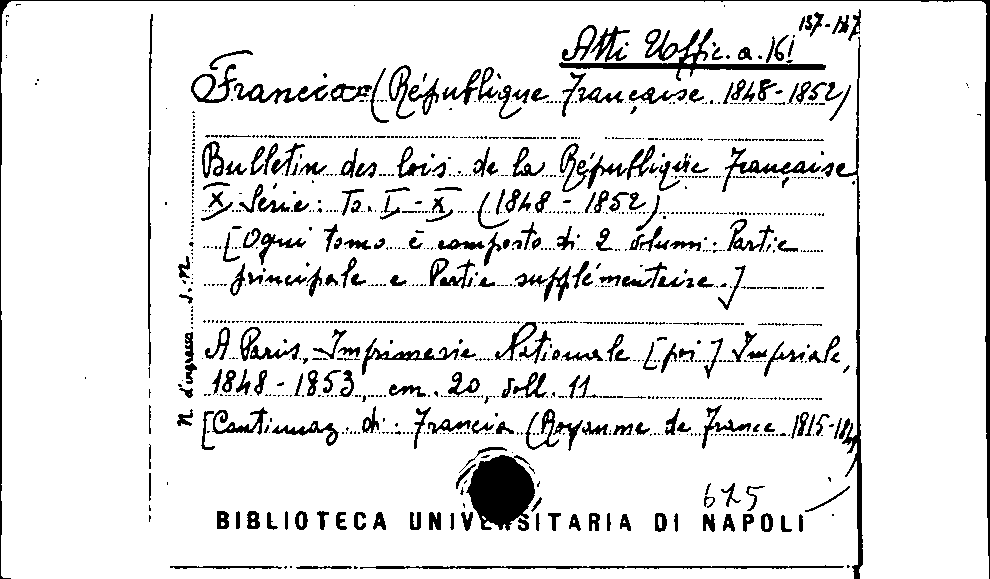 137-147
Atti Uffic. a. 16!
Francia (République Française. 1848-1852)
Bulletin des lois de la République Française.
X Série: To. I - X (1848 - 1852)
[Ogni tomo è composto di 2 volumi: Partie
principale e Partie supplémentaire.]
A Paris, Imprimerie Nationale [poi] Imperiale,
1848 - 1853, cm. 20, voll. 11.
[Continuaz. di: Francia (Royaume de France. 1815-184
N. d'ingresso s. n.
675
BIBLIOTECA UNIVERSITARIA DI NAPOLI